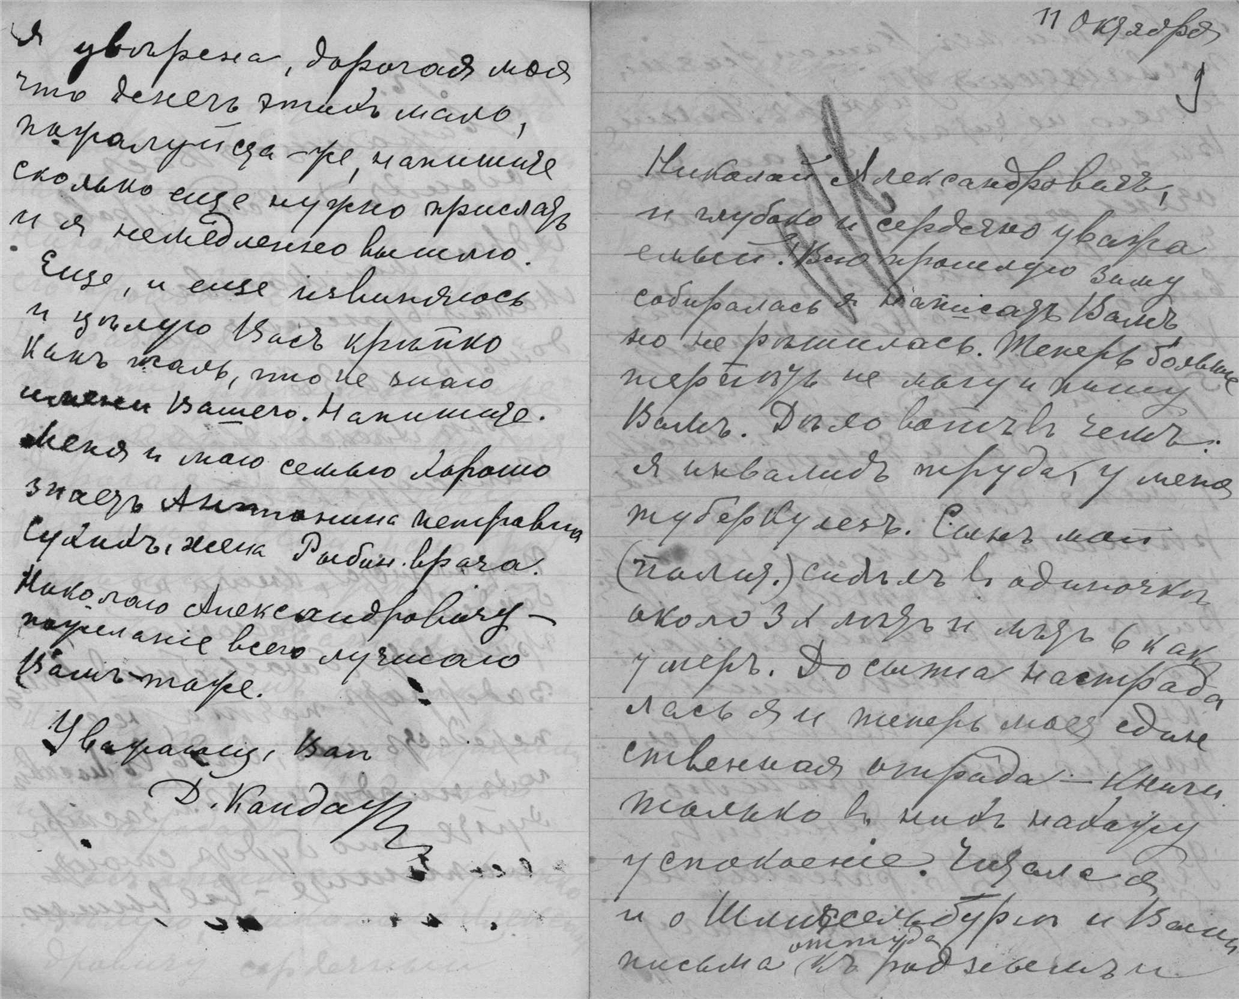 Я увѣрена, дорогая моя
что денегъ этихъ мало,
пожалуйста-же, напишите
сколько еще нужно прислать
и я немедленно вышлю.
Еще, и еще извиняюсь
и цѣлую Васъ крѣпко
Какъ жаль, что не знаю
имени Вашего. Напишите.
Меня и мою семью хорошо
знаетъ Антонина Петровна
Сухихъ, жена Рыбин. врача.
Николаю Александровичу –
пожеланіе всего лучшаго
Вамъ-тоже.
Уважающ. Вас
Д. Кандау
11 Октября
9
Николай Александровичъ,
и глубоко и сердечно уважа
емый! Всю прошлую зиму
собиралась я написать Вамъ,
но не рѣшилась. Теперь больше
терпѣть не могу и пишу
Вамъ. Дѣло вотъ въ чемъ:
я инвалидъ труда, у меня
туберкулезъ. Сынъ мой
(полит.) сидѣлъ въ одиночкѣ
около 3х лѣтъ и лѣтъ 6 как
умеръ. Досыта настрада
лась я и теперь моя един
ственная отрада – книги
только въ нихъ нахожу
успокоеніе. Читала я
и о Шлиссельбургѣ и Ваши
письма оттуда къ роднымъ и